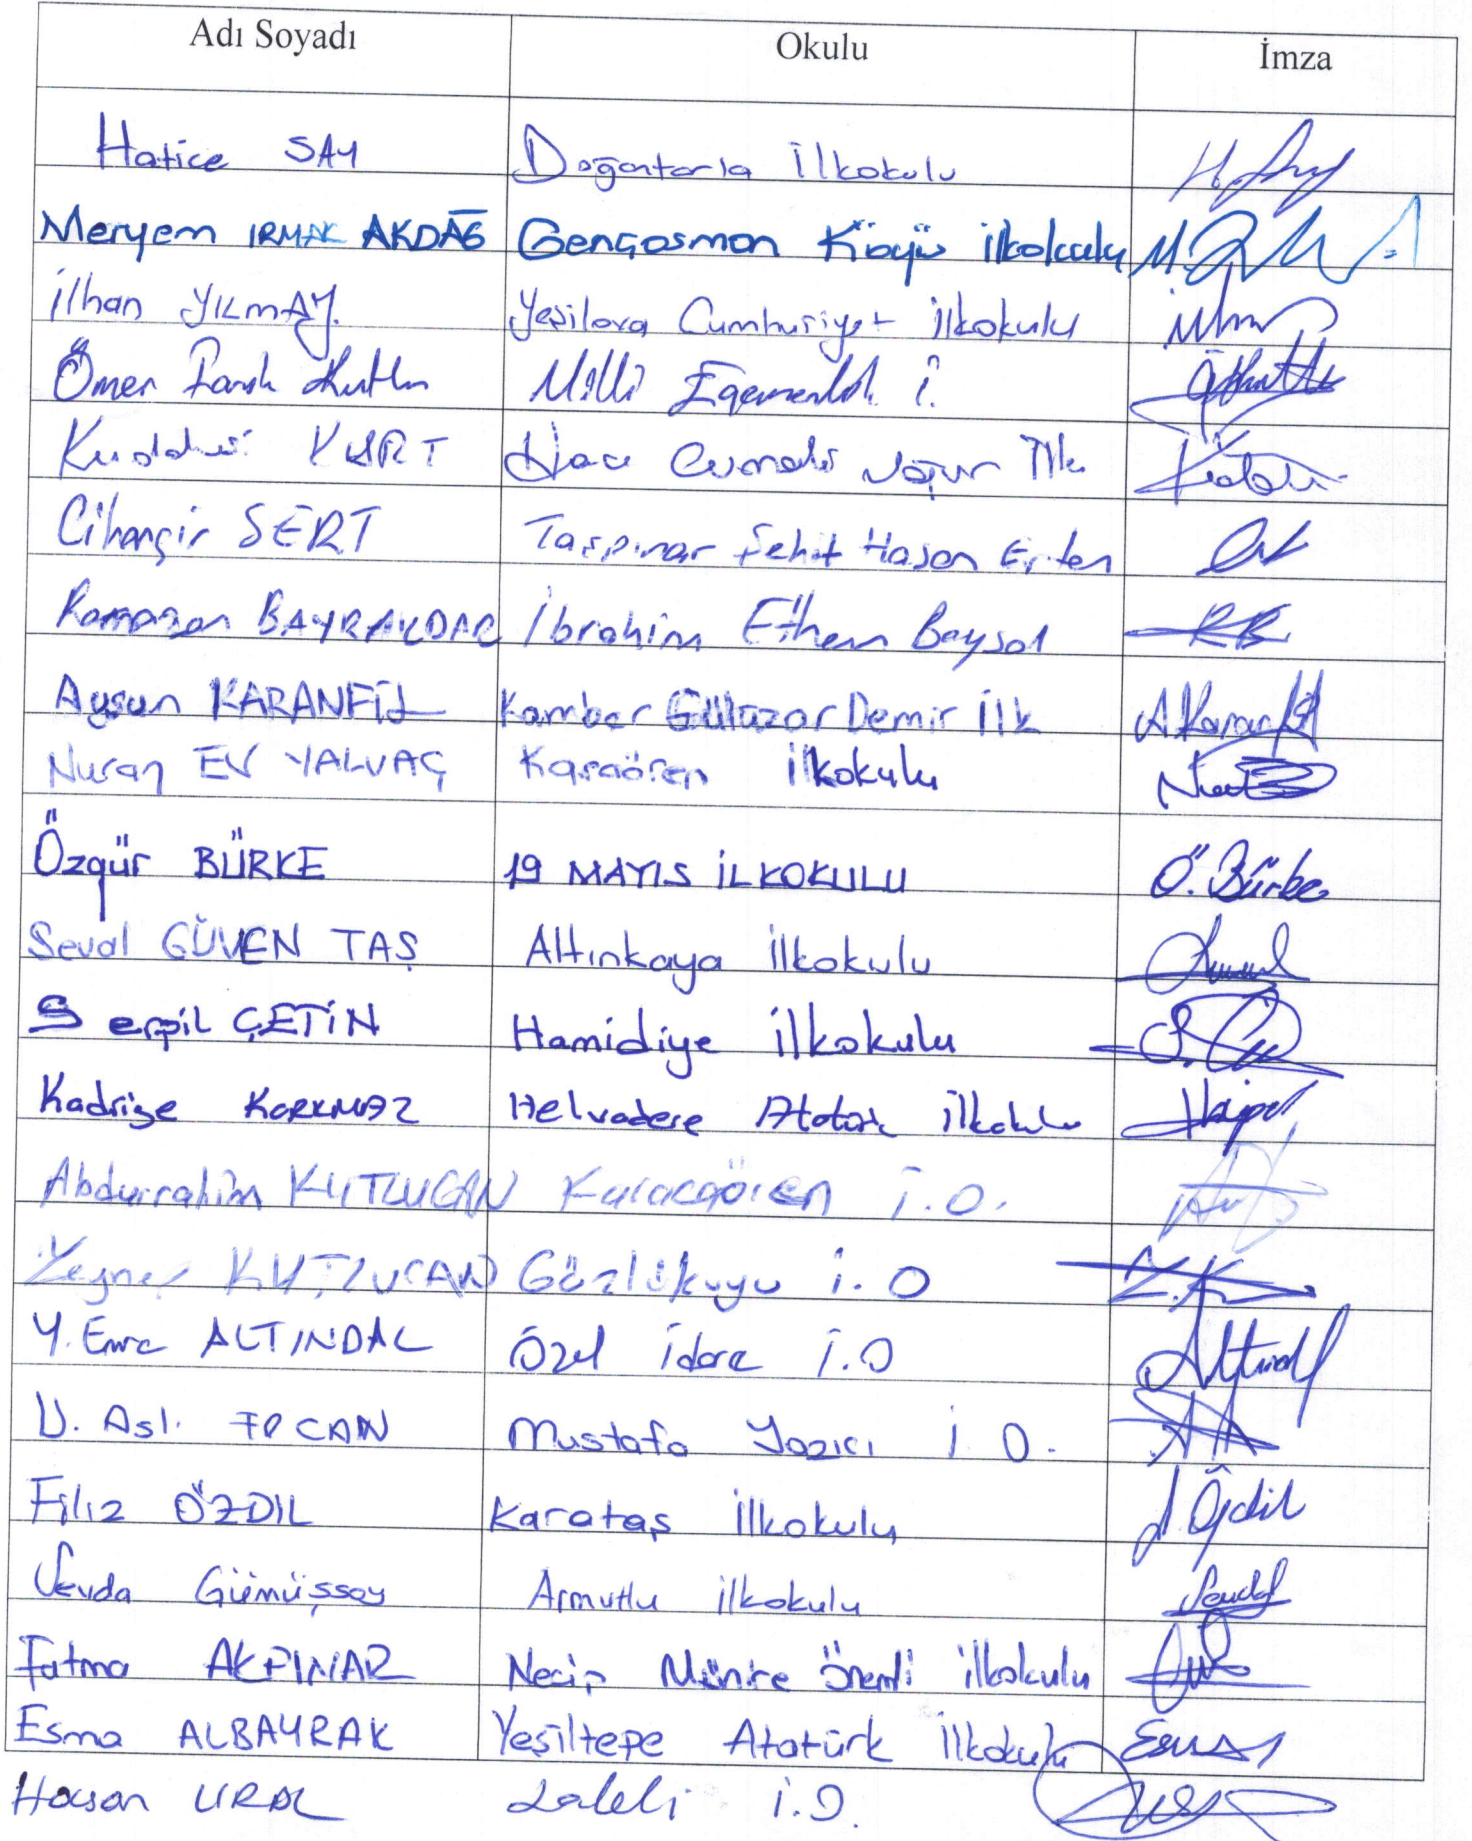 Adı Soyadı Okulu İmza
Hatice SAY Doğantarla İlkokulu
Meryem IRMAK AKDAĞ Gençosman Köyü İlkokulu
İlhan YILMAZ Yeşilova Cumhuriyet İlkokulu
Ömer Faruk Kutlu Milli Egemenlik İ.
Kuddusi KURT Hacı
Cihangir SERT Taşpınar Şehit Hasan Erten
Ramazan BAYRAKDAR İbrahim Ethem Baysal
Aysun KARANFİL Kamber Gülazar Demir İlk
Nuran EV YALVAÇ Karaören İlkokulu
Özgür BÜRKE 19 MAYIS İLKOKULU Ö. Bürke
Seval GÜVEN TAŞ Altınkaya İlkokulu
Serpil ÇETİN Hamidiye İlkokulu
Kadriye KORKMAZ Helvadere Atatürk İlkokulu
Abdurrahim KUTLUCAN Karacaören İ.O.
Zeynep KUTLUCAN Gözlükuyu İ.O Z.K
Y. Emre ALTINDAL Özel İdare İ.O
Aslı Mustafa Yazıcı İ.O.
Filiz ÖZDİL Karataş İlkokulu
Sevda Gümüşsoy Armutlu İlkokulu
Fatma AKPINAR Necip Münire Önemli İlkokulu
Esma ALBAYRAK Yeşiltepe Atatürk İlkokulu
Hasan URAL Laleli İ.O.